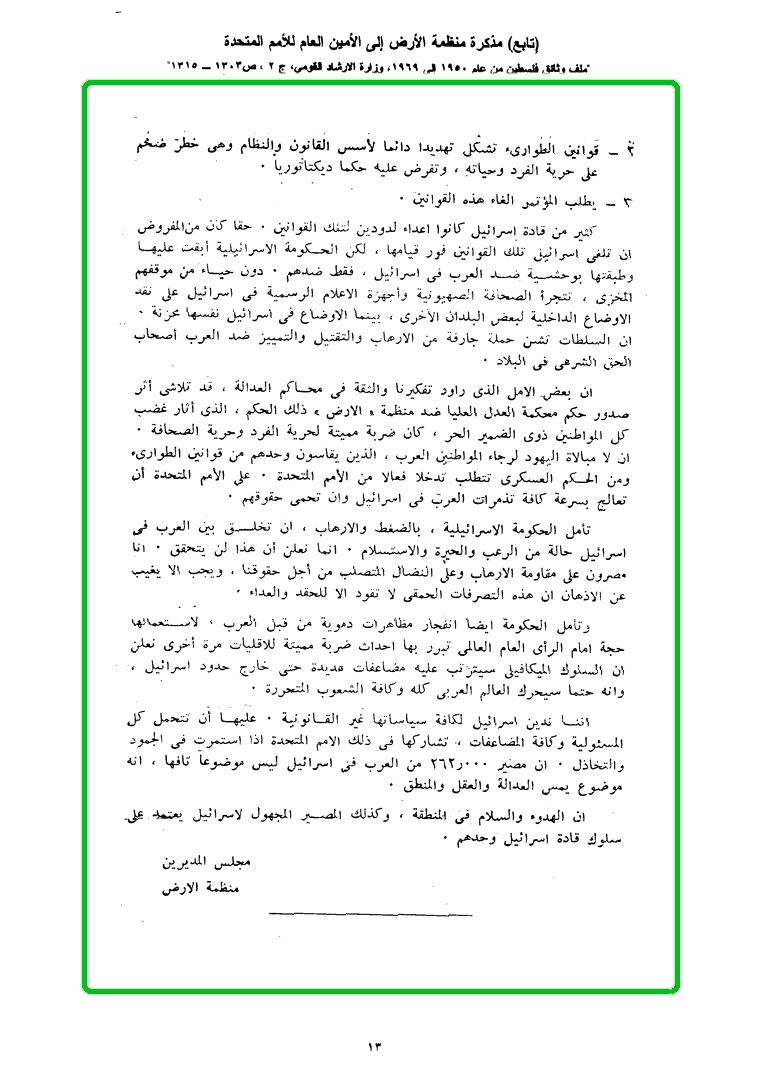 (تابع) مذكرة منظمة الأرض إلى الأمين العام للأمم المتحدة
"ملف وثائق فلسطين من عام ١٩٥٠ إلى ١٩٦٩، وزارة الارشاد القومى، ج ٢ ، ص ١٣٠٣ ــ ١٣١٥"
٢ ــ قوانين الطوارىء تشكل تهديدا دائما لأسس القانون والنظام وهى خطر ضخم
على حرية الفرد وحياته ، وتفرض عليه حكما ديكتاتوريا ٠
٣ ــ يطلب المؤتمر الغاء هذه القوانين ٠
كثير من قادة اسرائيل كانوا اعداء لدودين لتلك القوانين ٠ حقا كان من المفروض
ان تلغى اسرائيل تلك القوانين فور قيامها ، لكن الحكومة الاسرائيلية أبقت عليها
وطبقتها بوحشية ضد العرب فى اسرائيل ، فقط ضدهم ٠ دون حياء من موقفهم
المخزى ، تتجرأ الصحافة الصهيونية وأجهزة الاعلام الرسمية فى اسرائيل على نقد
الاوضاع الداخلية لبعض البلدان الأخرى ، بينما الاوضاع فى اسرائيل نفسها محزنة ٠
ان السلطات تشن حملة جارفة من الارهاب والتقتيل والتمييز ضد العرب أصحاب
الحق الشرعى فى البلاد ٠
ان بعض الامل الذى راود تفكيرنا والثقة فى محاكم العدالة ، قد تلاشى أثر
صدور حكم محكمة العدل العليا ضد منظمة « الارض » ذلك الحكم ، الذى أثار غضب
كل المواطنين ذوى الضمير الحر ، كان ضربة مميتة لحرية الفرد وحرية الصحافة ٠
ان لا مبالاة اليهود لرجاء المواطنين العرب ، الذين يقاسون وحدهم من قوانين الطوارىء
ومن الحكم العسكرى تتطلب تدخلا فعالا من الأمم المتحدة ٠ على الأمم المتحدة أن
تعالج بسرعة كافة تذمرات العرب فى اسرائيل وان تحمى حقوقهم ٠
تأمل الحكومة الاسرائيلية ، بالضغط والارهاب ، ان تخلق بين العرب فى
اسرائيل حالة من الرعب والحيرة والاستسلام ٠ انما نعلن أن هذا لن يتحقق ٠ انا
مصرون على مقاومة الارهاب وعلى النضال المتصلب من أجل حقوقنا ، ويجب الا يغيب
عن الاذهان ان هذه التصرفات الحمقى لا تقود الا للحقد والعداء ٠
وتأمل الحكومة ايضا انفجار مظاهرات دموية من قبل العرب ، لاستعمالها
حجة امام الرأى العام العالمى تبرر بها احداث ضربة مميتة للاقليات مرة أخرى نعلن
ان السلوك الميكافيلى سيترتب عليه مضاعفات عديدة حتى خارج حدود اسرائيل ،
وانه حتما سيحرك العالم العربى كله وكافة الشعوب المتحررة ٠
اننا ندين اسرائيل لكافة سياساتها غير القانونية ٠ عليها أن تتحمل كل
المسئولية وكافة المضاعفات ، تشاركها فى ذلك الامم المتحدة اذا استمرت فى الجمود
والتخاذل ٠ ان مصير ٢٦٢٫٠٠٠ من العرب فى اسرائيل ليس موضوعا تافها ، انه
موضوع يمس العدالة والعقل والمنطق ٠
ان الهدوء والسلام فى المنطقة ، وكذلك المصير المجهول لاسرائيل يعتمد على
سلوك قادة اسرائيل وحدهم ٠
مجلس المديرين
منظمة الارض
١٣